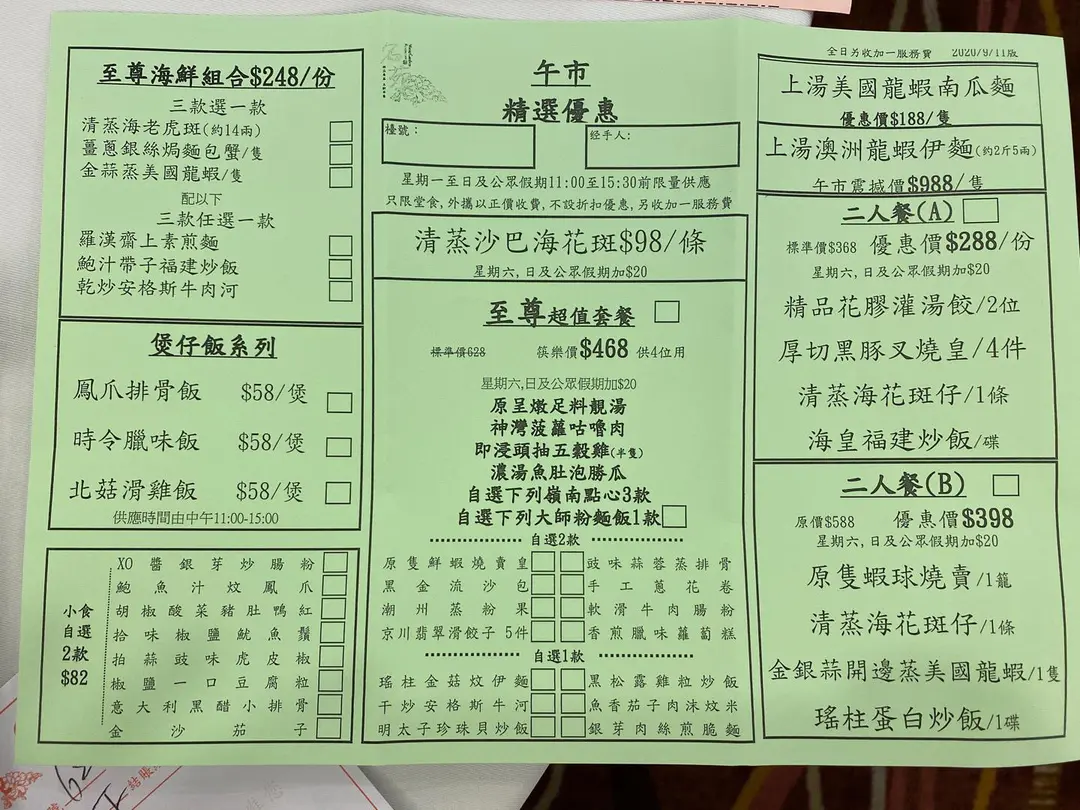 至尊海鮮組合$248/份
三款選一款
清蒸海老虎斑(約14兩)
薑蔥銀絲焗麵包蟹/隻
金蒜蒸美國龍蝦/隻
配以下
三款任選一款
羅漢齋上素煎麵
鮑汁帶子福建炒飯
乾炒安格斯牛肉河
煲仔飯系列
鳳爪排骨飯 $58/煲
時令臘味飯 $58/煲
北菇滑雞飯 $58/煲
供應時間由中午11:00-15:00
小食
自選
2款
$82
XO醬銀芽炒腸粉
鮑魚汁炆鳳爪
胡椒酸菜豬肚鴨紅
拾味椒鹽魷魚鬚
拍蒜豉味虎皮椒
椒鹽一口豆腐粒
意大利黑醋小排骨
金沙茄子
午市
精選優惠
檯號:
经手人:
星期一至日及公眾假期11:00至15:30前限量供應
只限堂食,外攜以正價收費,不設折扣優惠,另收加一服務費
清蒸沙巴海花斑$98/條
星期六,日及公眾假期加$20
至尊超值套餐
標準價628 筷樂價$468 供4位用
星期六,日及公眾假期加$20
原呈燉足料靚湯
神灣菠蘿咕嚕肉
即浸頭抽五穀雞(半隻)
濃湯魚肚泡勝瓜
自選下列嶺南點心3款
自選下列大師粉麵飯1款
自選2款
原隻鮮蝦燒賣皇 豉味蒜蓉蒸排骨
黑金流沙包 手工蔥花卷
潮州蒸粉果 軟滑牛肉腸粉
京川翡翠滑餃子5件 香煎臘味蘿蔔糕
自選1款
瑤柱金菇炆伊麵 黑松露雞粒炒飯
干炒安格斯牛河 魚香茄子肉沫炆米
明太子珍珠貝炒飯 銀芽肉絲煎脆麵
全日另收加一服務費 2020/9/11版
上湯美國龍蝦南瓜麵
優惠價$188/隻
上湯澳洲龍蝦伊麵(約2斤5兩)
午市震撼價$988/隻
二人餐(A)
標準價$368 優惠價$288/份
星期六,日及公眾假期加$20
精品花膠灌湯餃/2位
厚切黑豚叉燒皇/4件
清蒸海花斑仔/1條
海皇福建炒飯/碟
二人餐(B)
原價$588 優惠價$398
星期六,日及公眾假期加$20
原隻蝦球燒賣/1籠
清蒸海花斑仔/1條
金銀蒜開邊蒸美國龍蝦/1隻
瑤柱蛋白炒飯/1碟